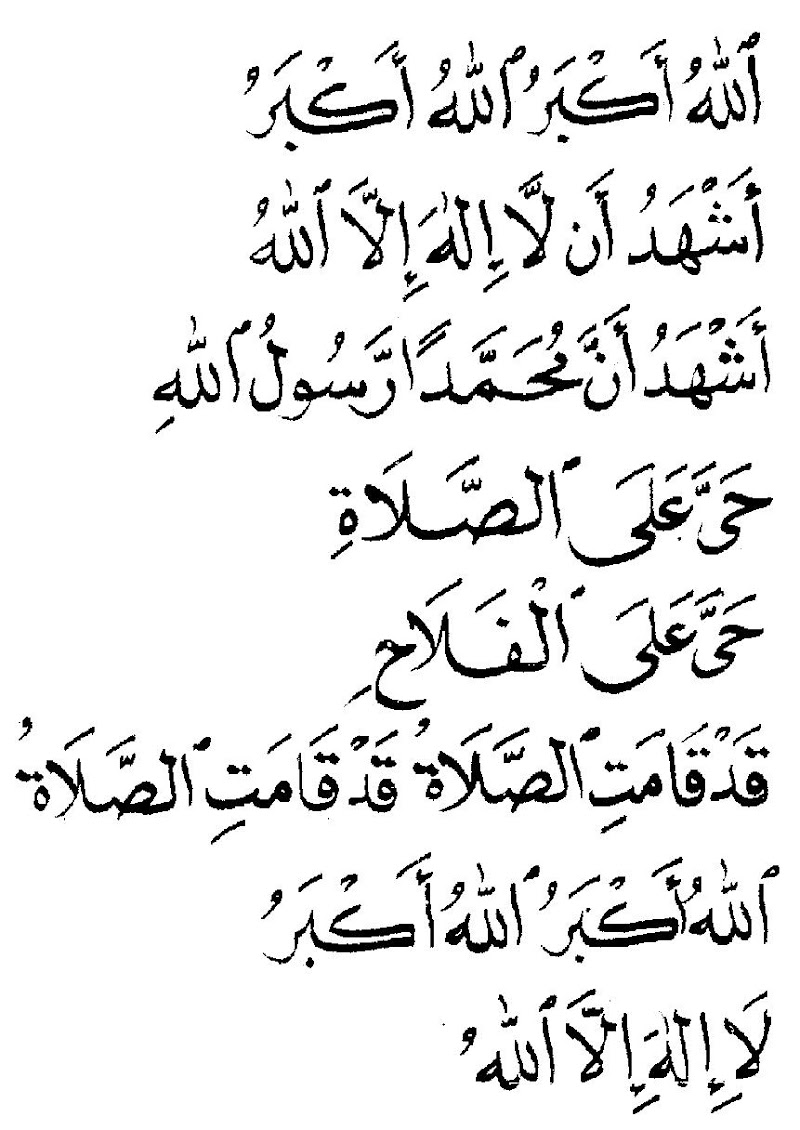 ٱللّٰهُ أَكْبَرُ ٱللّٰهُ أَكْبَرُ
أَشْهَدُ أَن لَّا إِلٰهَ إِلَّا ٱللّٰهُ
أَشْهَدُ أَنَّ مُحَمَّدًا رَّسُولُ ٱللّٰهِ
حَيَّ عَلَى ٱلصَّلَاةِ
حَيَّ عَلَى ٱلْفَلَاحِ
قَدْ قَامَتِ ٱلصَّلَاةُ قَدْ قَامَتِ ٱلصَّلَاةُ
ٱللّٰهُ أَكْبَرُ ٱللّٰهُ أَكْبَرُ
لَا إِلٰهَ إِلَّا ٱللّٰهُ